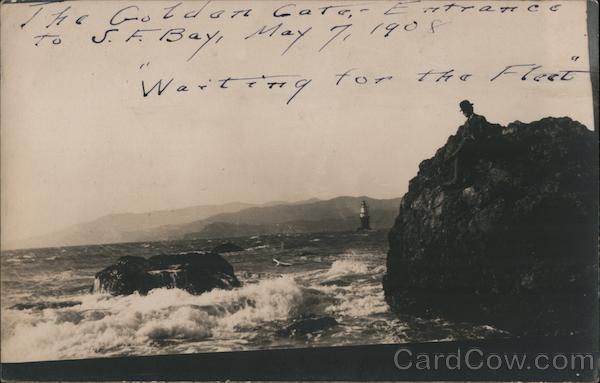 The Golden Gate, - Entrance
to S.F. Bay, May 7, 1908
"Waiting for the Fleet"
CardCow.com